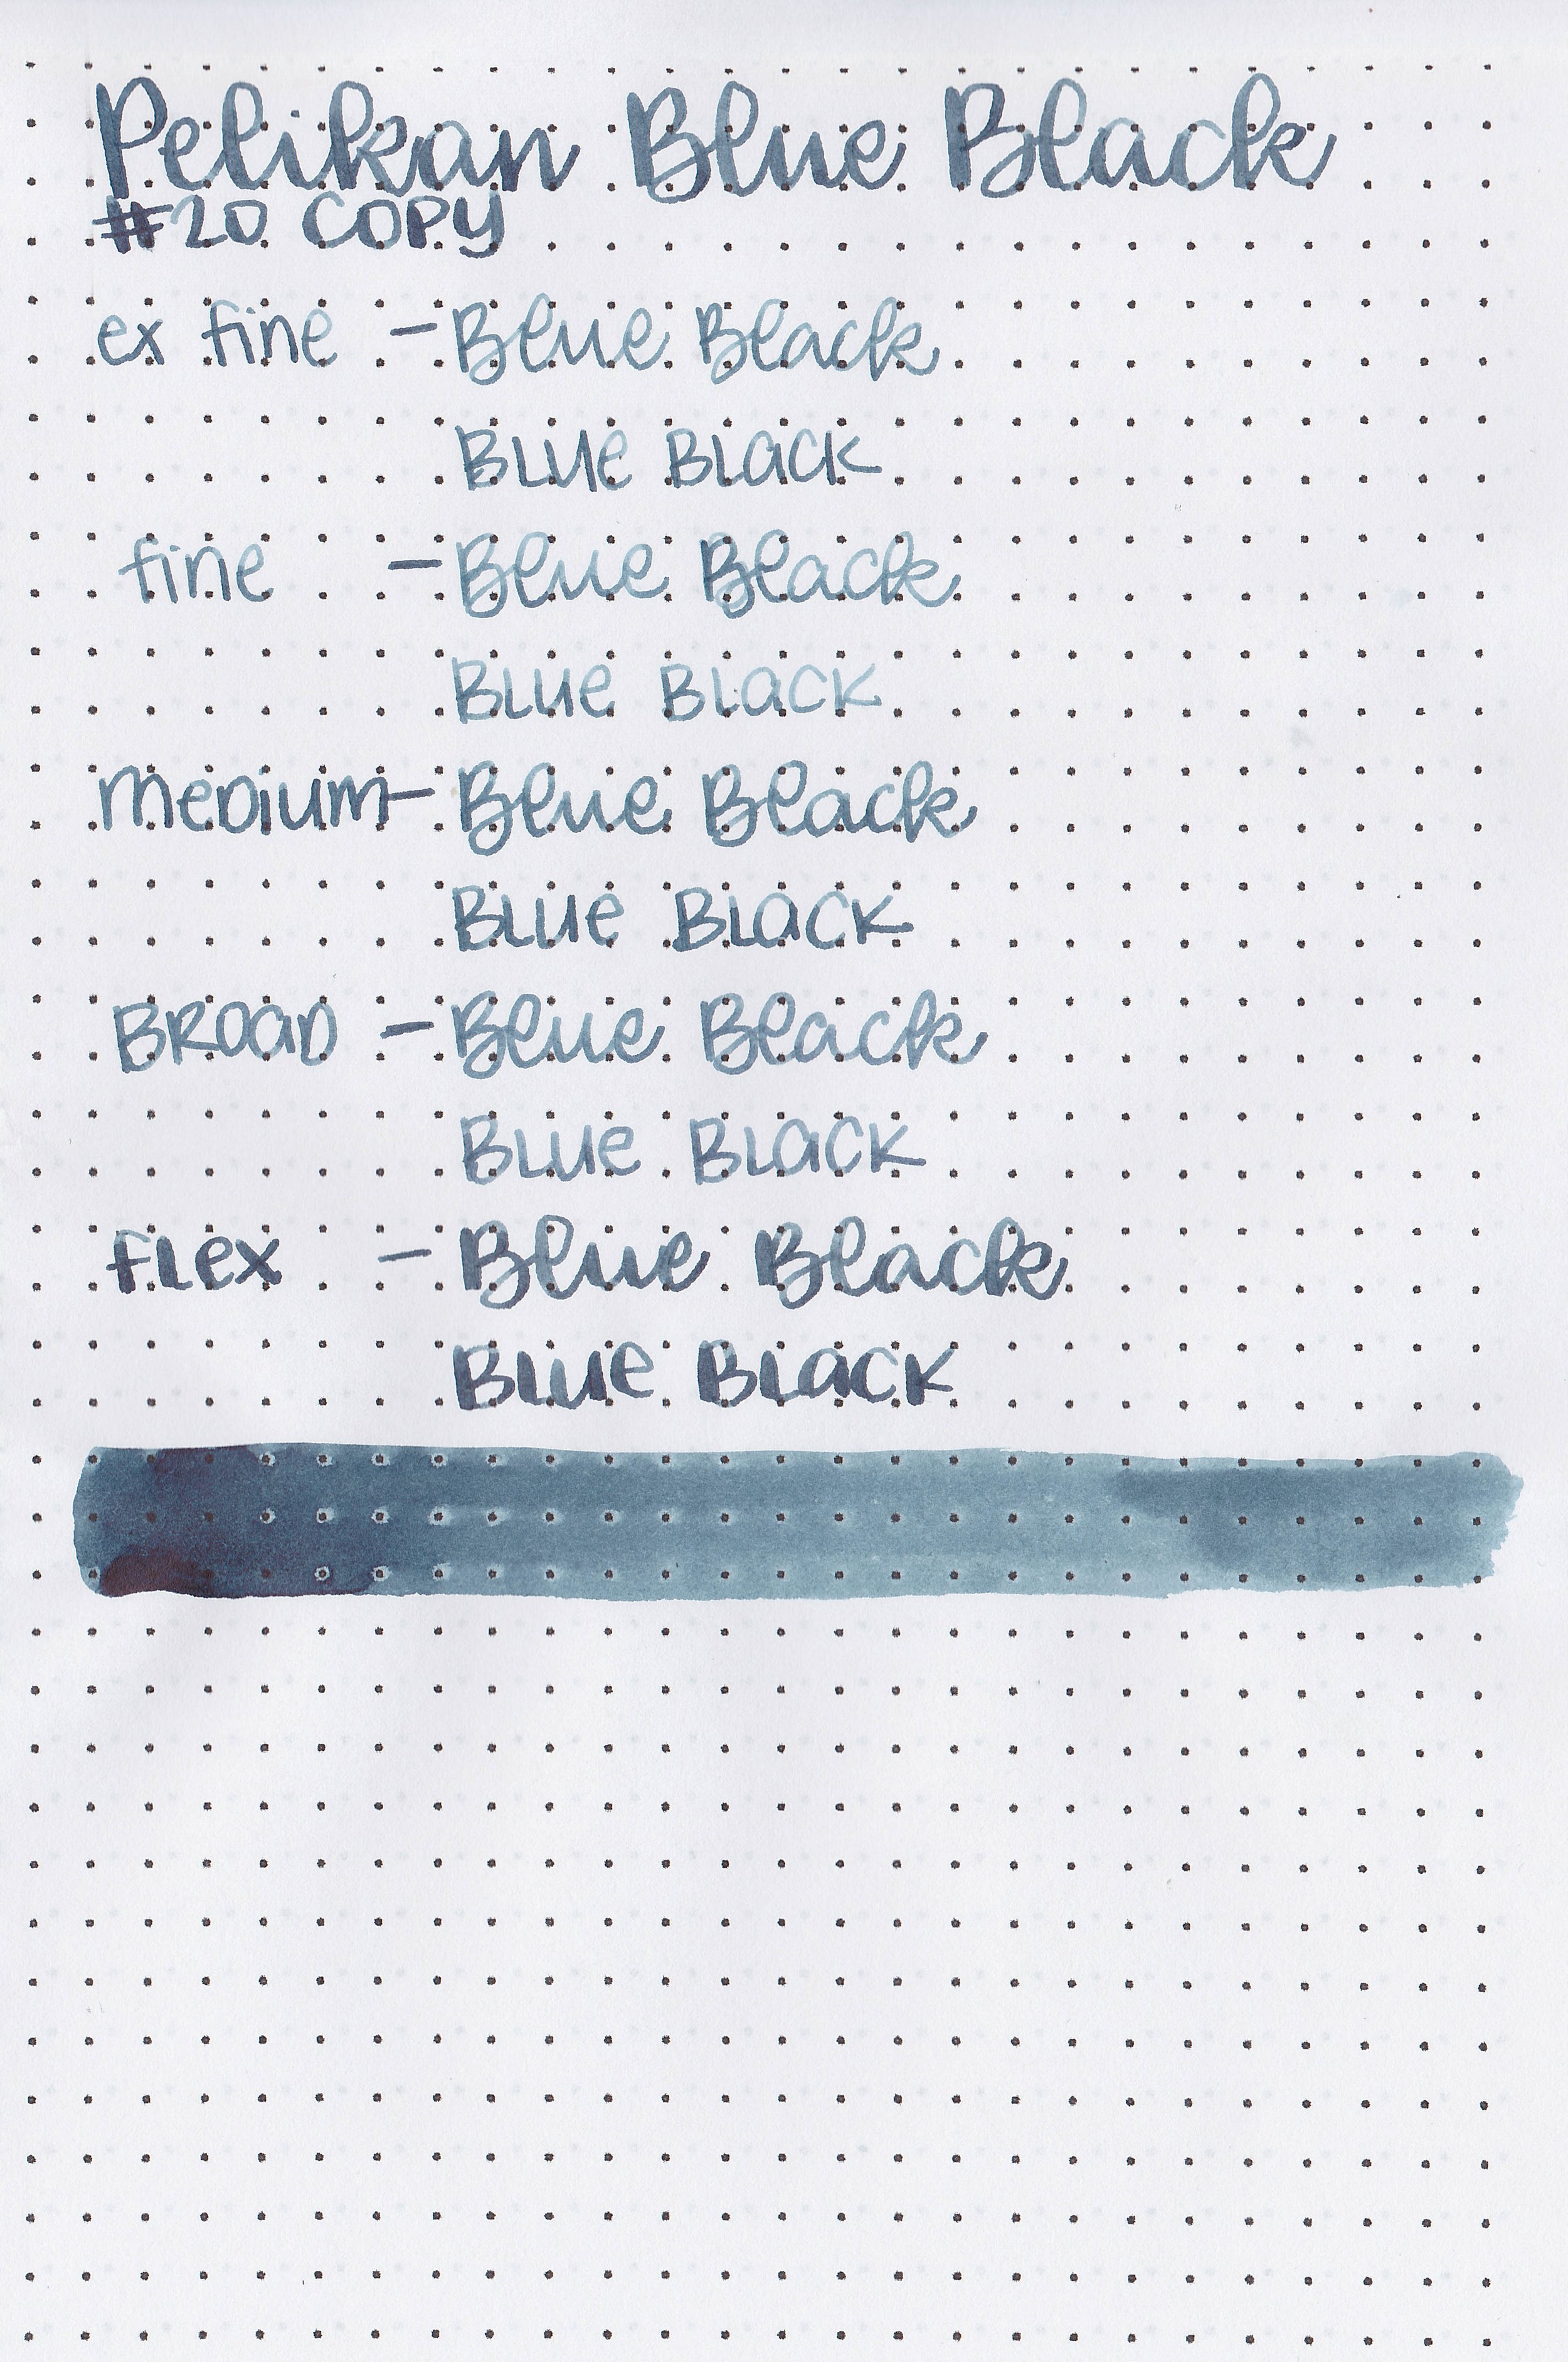 Pelikan Blue Black
#20 COPY
ex fine - Blue Black
BLUe BLaCK
fine - Blue Black
BLUe BLaCK
MeDiuM - Blue Black
BLUe BLaCK
BROaD - Blue Black
BLUe BLaCK
fLex - Blue Black
BLUe BLaCK